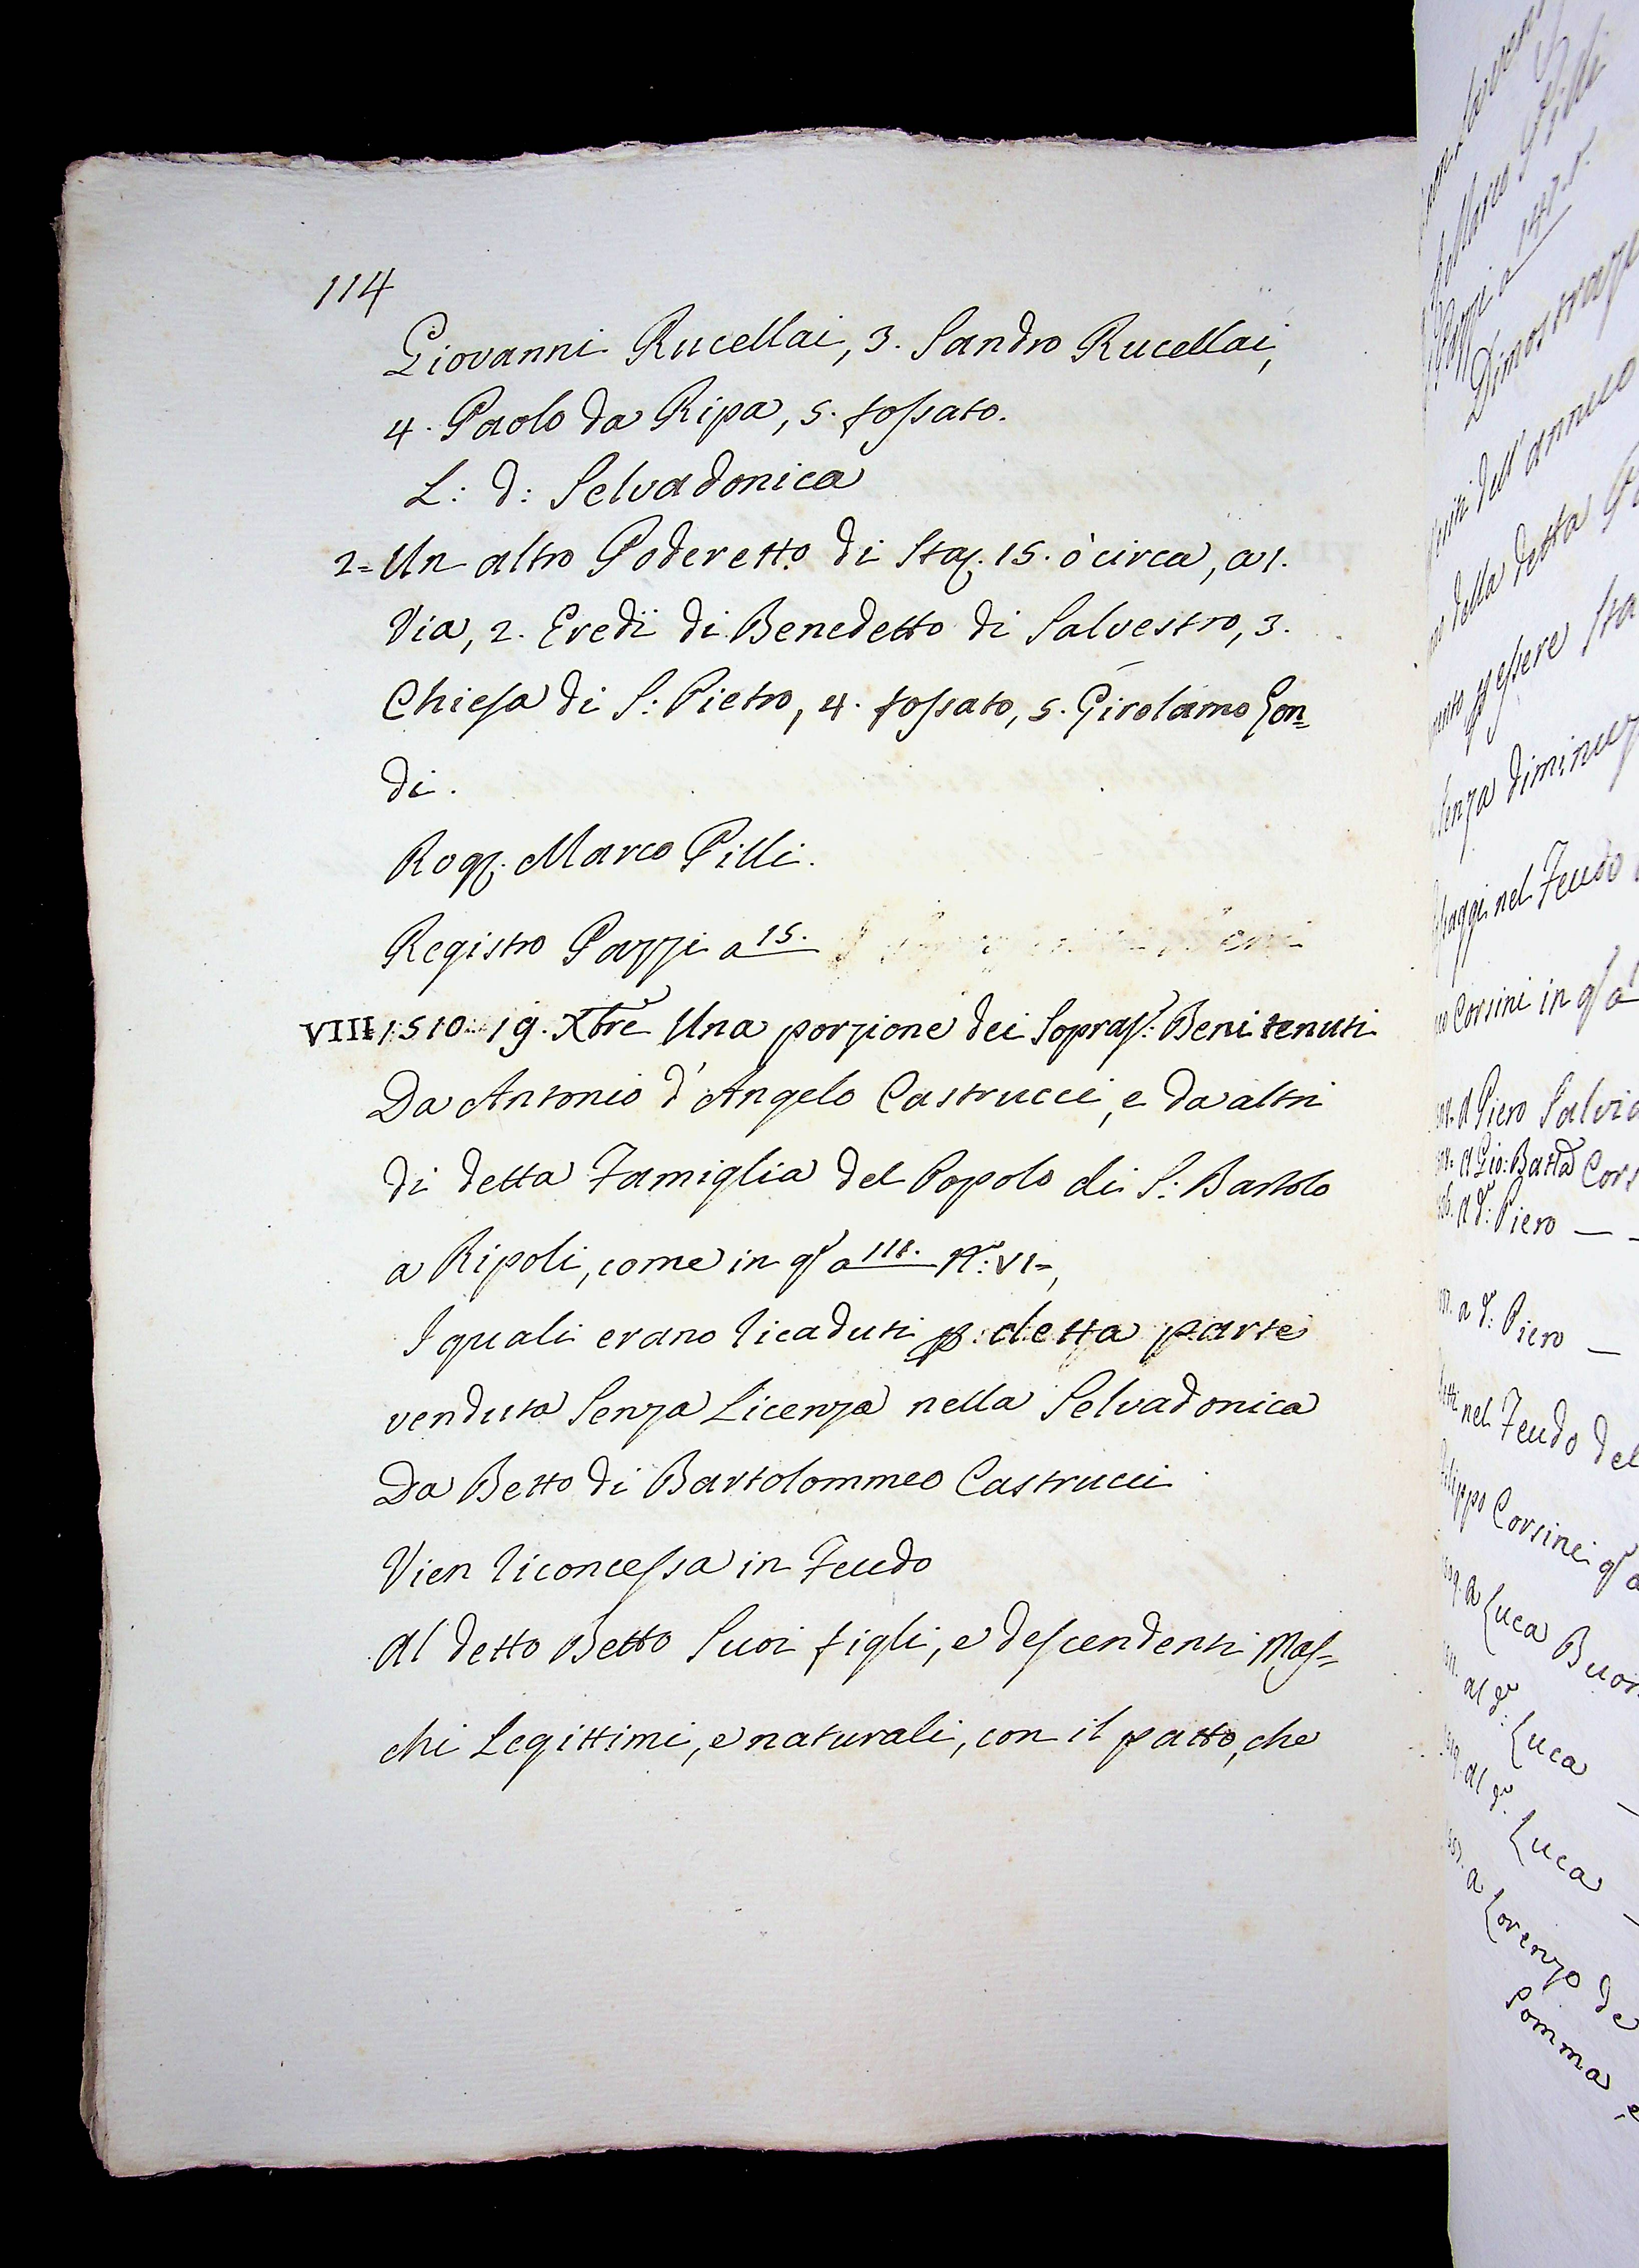 114
Giovanni Rucellai, 3. Sandro Rucellai,
4. Paolo da Ripa, 5. fossato.
L: d: Selvadonica
2= Un altro Poderetto di Staq. 15. ò circa, a 1.
Via, 2. Eredi di Benedetto di Salvestro, 3.
Chiesa di S: Pietro, 4. fossato, 5. Girolamo Gon=
di.
Rog. Marco Pilli.
Registro Pazzi a 15.
VIII 1510. 19. Xbre Una porzione dei Sopras: Beni tenuti
Da Antonio d'Angelo Castrucci, e da altri
di detta Famiglia del Popolo di S: Bartolo
a Ripoli, come in qs a 111. No: VI=,
I quali erano ricaduti p: detta parte
venduta Senza Licenza nella Selvadonica
Da Betto di Bartolommeo Castrucci
Vien riconcessa in Feudo
Al detto Betto Suoi figli, e descendenti Mas=
chi Legittimi, e naturali, con il patto, che
Marco Pilli
Pazzi a 147.
Dimostrazi
dell' annuo
della detta
essere Sta
Senza diminuz
nel Feudo
Corsini in qs a
A Piero Salvia
A Gio: Batta Cors
A do: Piero —
a do: Piero —
nel Feudo del
Filippo Corsini qs a
a Luca Buon
al do: Luca —
al do: Luca —
a Lorenzo de
Somma e